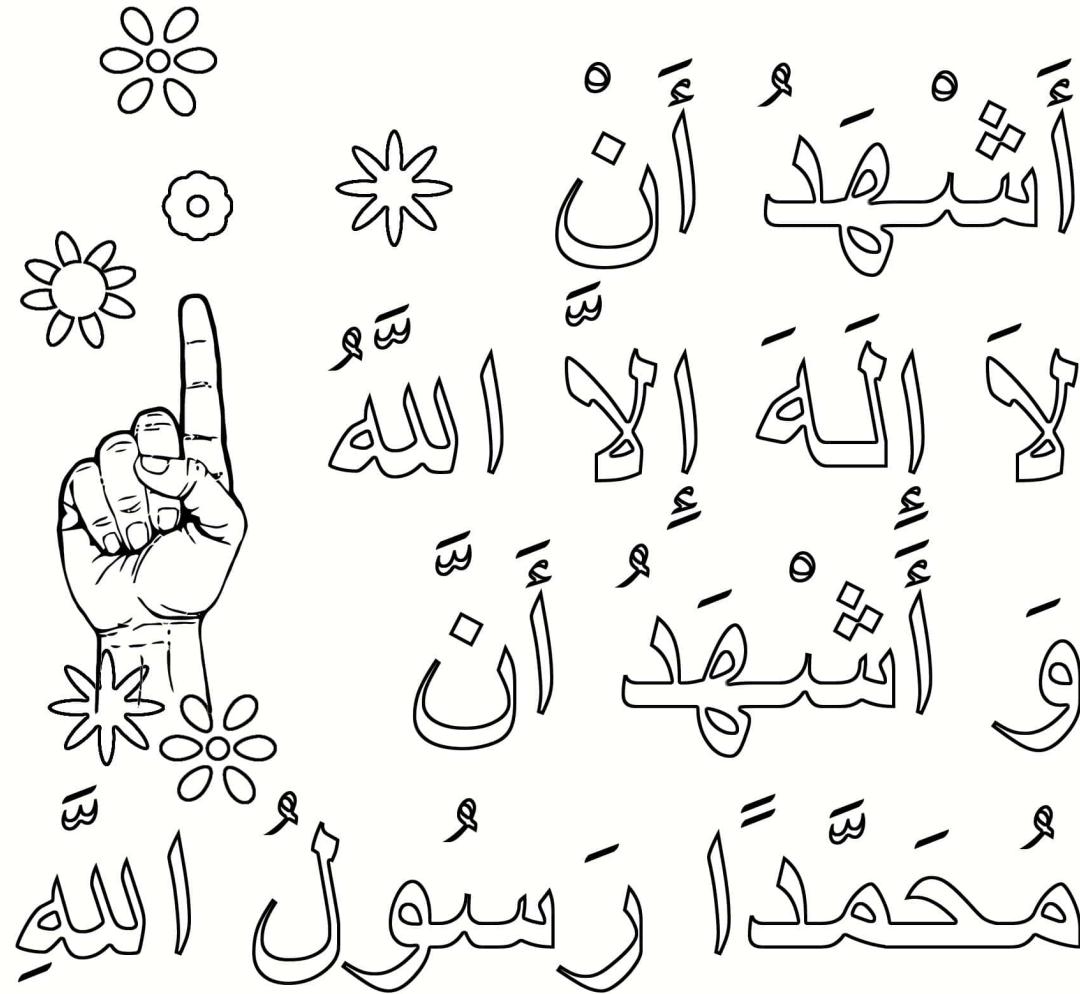 أَشْهَدُ أَنْ
لَا إِلَهَ إِلَّا اللَّهُ
وَ أَشْهَدُ أَنَّ
مُحَمَّدًا رَسُولُ اللَّهِ